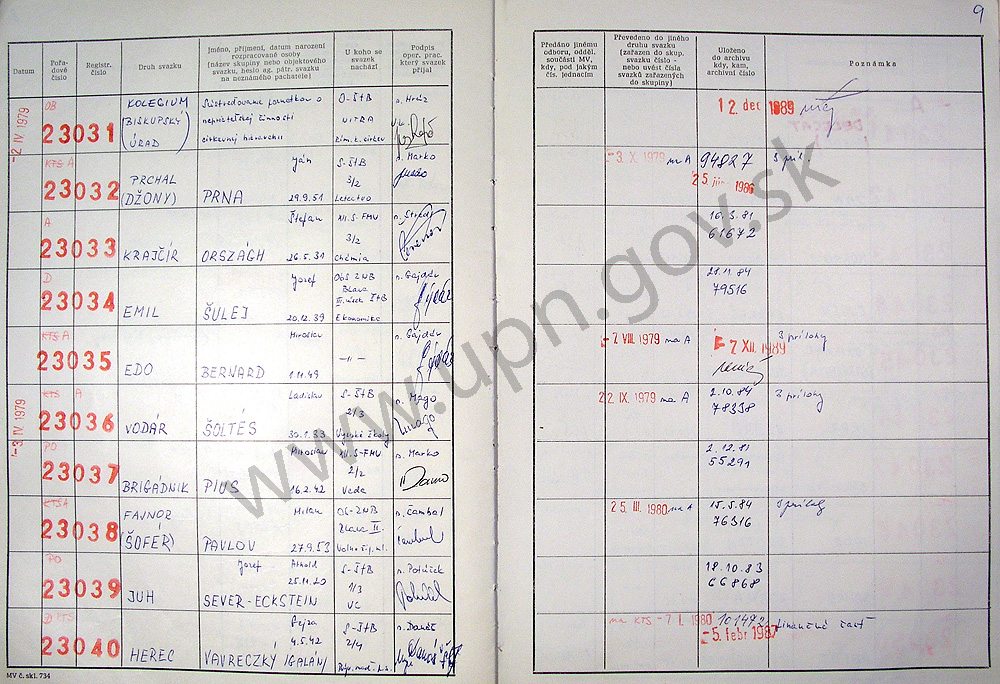 9
Datum
Pořadové číslo
Registr. číslo
Druh svazku
Jméno, příjmení, datum narození rozpracované osoby (název skupiny nebo objektového svazku, heslo ag. pátr. svazku na neznámého pachatele)
U koho se svazek nachází
Podpis oper. prac. který svazek přijal
Předáno jinému odboru, odděl. součásti MV, kdy, pod jakým čís. jednacím
Převedeno do jiného druhu svazku (zařazen do skup. svazku číslo - nebo uvést čísla svazků zařazených do skupiny)
Uloženo do archivu kdy, kam, archivní číslo
Poznámka
-2 IV 1979
OB
23031
KOLEGIUM
(BISKUPSKÝ
ÚRAD)
O-ŠtB
NITRA
12. dec 1989
KTS A
23032
PRCHAL
(DŽONY)
Ján
PRNA
29.9.51
S-ŠtB
3/2
Letectvo
p. Marko
-3. X. 1979 na A
94827
25. jún 1986
3 príl.
A
23033
KRAJČÍR
Štefan
ORSZÁGH
26.5.31
XII.S-FMV
3/2
Chémia
16.3.81
61672
D
23034
EMIL
Jozef
ŠULEJ
20.12.39
ObS ZNB
Ekonomika
p. Gajdár
21.11.84
79516
KTS A
23035
EDO
Miroslav
BERNARD
1.11.49
-11-
p. Gajdár
-7 VIII. 1979 na A
7 XII. 1989
3 prílohy
-3 IV 1979
KTS A
23036
VODÁR
Ladislav
ŠOLTÉS
30.1.33
S-ŠtB
2/3
Vysoké školy
p. Mago
22. IX. 1979 na A
2.10.84
78338
3 prílohy
PO
23037
BRIGÁDNIK
Miroslav
PIUS
16.2.42
XII.S-FMV
2/2
Veda
p. Marko
2.12.81
55291
KTS A
23038
FAJNOR
(ŠOFÉR)
Milan
PAVLOV
27.9.53
OS-ZNB
p. Čambal
25. III. 1980 na A
15.5.84
76316
3 prílohy
PO
23039
JUH
Jozef Arnold
25.11.20
SEVER-ECKSTEIN
S-ŠtB
1/3
18.10.83
66868
D KTS
23040
HEREC
4.5.42
VAVRECZKÝ (GALÁN)
S-ŠtB
2/4
p. Danáš
na KTS -7 I. 1980
101492
-5. febr 1987
Finančná časť
MV č. skl. 734
www.upn.gov.sk